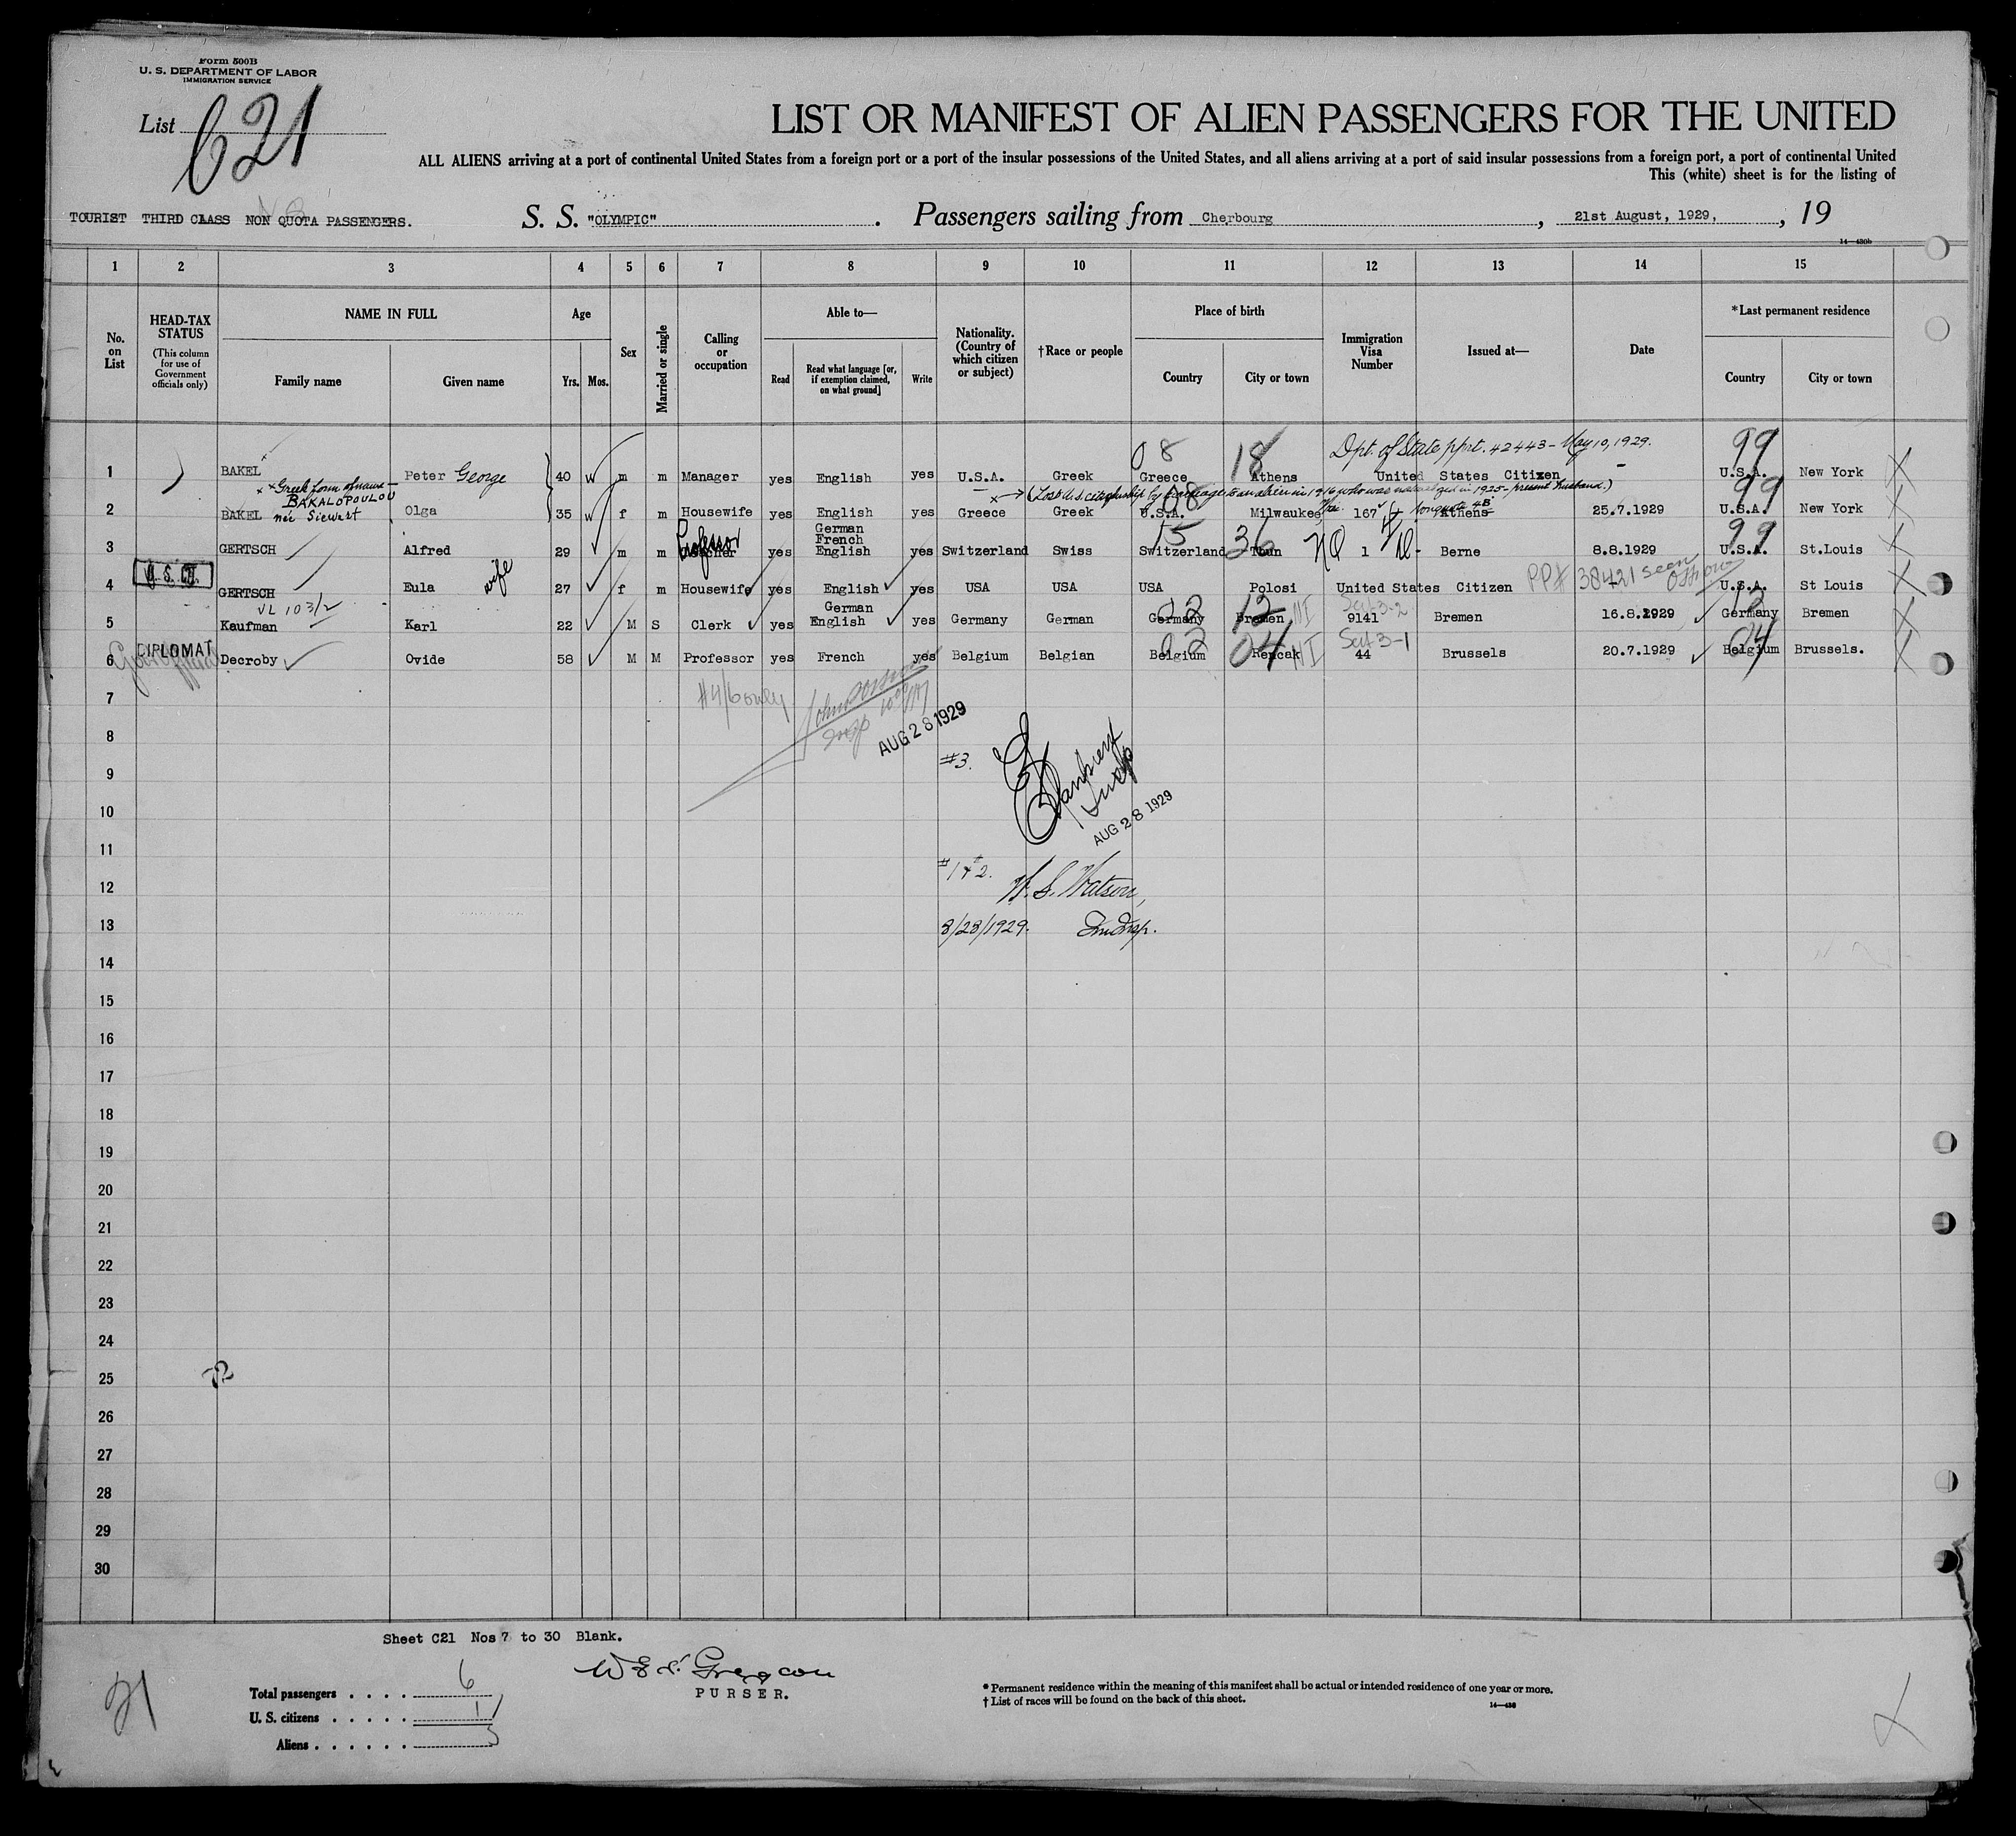 Form 500B
U. S. DEPARTMENT OF LABOR
IMMIGRATION SERVICE
List 621
LIST OR MANIFEST OF ALIEN PASSENGERS FOR THE UNITED
ALL ALIENS arriving at a port of continental United States from a foreign port or a port of the insular possessions of the United States, and all aliens arriving at a port of said insular possessions from a foreign port, a port of continental United
This (white) sheet is for the listing of
TOURIST THIRD CLASS NON QUOTA PASSENGERS. S. S. "OLYMPIC". Passengers sailing from Cherbourg, 21st August, 1929, , 19
14—430b
1 2 3 4 5 6 7 8 9 10 11 12 13 14 15
No. on List
HEAD-TAX STATUS (This column for use of Government officials only)
NAME IN FULL Family name Given name
Age Yrs. Mos.
Sex
Married or single
Calling or occupation
Able to— Read Read what language [or, if exemption claimed, on what ground] Write
Nationality. (Country of which citizen or subject)
†Race or people
Place of birth Country City or town
Immigration Visa Number
Issued at—
Date
*Last permanent residence Country City or town
08 18 Dpt. of State pprt. 42443 - May 10, 1929. 99
1 BAKEL Peter George 40 m m Manager yes English yes U.S.A. Greek Greece Athens United States Citizen - U.S.A. New York
x Greek form of name - BAKALOPOULOU
x (Lost U.S. citizenship by marriage to an alien in 1916 who was naturalized in 1925 - present husband.) 99
2 BAKEL née Siewert Olga 35 f m Housewife yes English yes Greece Greek U.S.A. Milwaukee Wis. 167 Athens 25.7.1929 U.S.A. New York
08 nonquota 4B
3 GERTSCH Alfred 29 m m Professor yes German French English yes Switzerland Swiss Switzerland Thun NQ 1 Berne 8.8.1929 U.S.A. St.Louis
15 36 99
4 U.S.C. GERTSCH Eula wife 27 f m Housewife yes English yes USA USA USA Polosi United States Citizen PP# 38421 seen U.S.A. St Louis
VL 103/2
5 Kaufman Karl 22 M S Clerk yes German English yes Germany German Germany Bremen 9141 Bremen 16.8.1929 Germany Bremen
12 12 Sect 3-2 12
6 DIPLOMAT Decroby Ovide 58 M M Professor yes French yes Belgium Belgian Belgium Rencak 44 Brussels 20.7.1929 Belgium Brussels.
02 04 Sect 3-1 04
7
#4/6 only
AUG 28 1929
8
#3.
9
10
AUG 28 1929
11
#1 & #2.
12
W. S. Watson,
13
8/28/1929. Im Insp.
14
15
16
17
18
19
20
21
22
23
24
25
26
27
28
29
30
Sheet C21 Nos 7 to 30 Blank.
21
Total passengers . . . . 6
U. S. citizens . . . . . 1
Aliens . . . . . . 5
PURSER.
* Permanent residence within the meaning of this manifest shall be actual or intended residence of one year or more.
† List of races will be found on the back of this sheet.
14—430